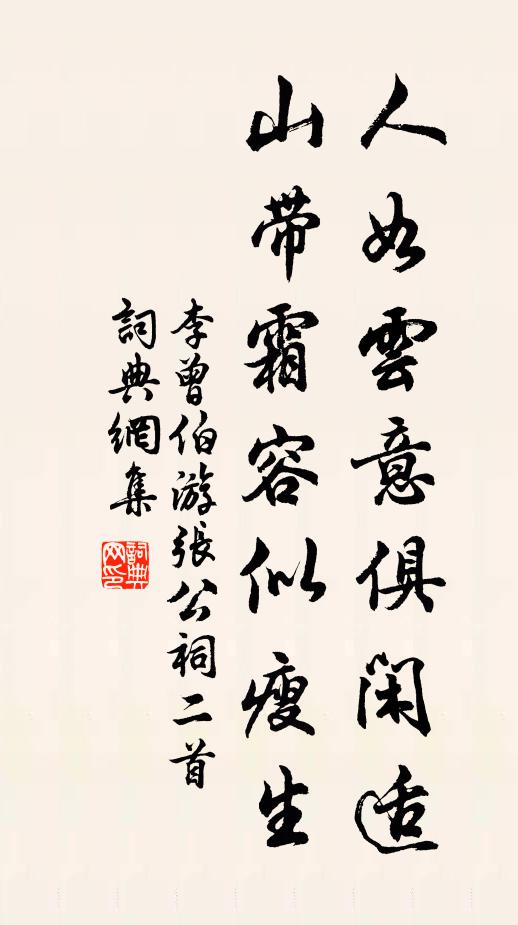 人如雲意俱闲适
山带霜容似瘦生
李曾伯游張公祠二首
詞典網集
詞典网印